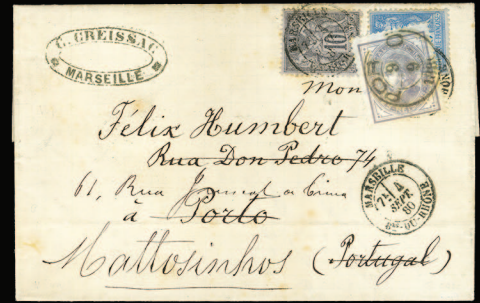 C. CREISSAC
MARSEILLE
10
PORTO
Mon
Félix Humbert
Rua Don Pedro 74
61, Rua
à Porto
Mattosinhos (Portugal)
MARSEILLE
4
SEPT.
80
BES-DU-RHONE